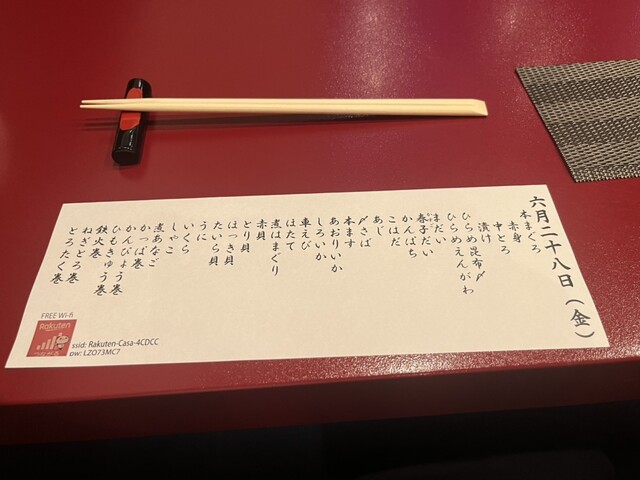 六月二十八日（金）
本まぐろ
赤身
中とろ
漬け
ひらめ昆布〆
ひらめえんがわ
まだい
春子だい
かんぱち
こはだ
あじ
〆さば
本ます
あおりいか
しろいか
車えび
ほたて
煮はまぐり
赤貝
とり貝
ほっき貝
たいら貝
うに
いくら
しゃこ
煮あなご
かっぱ巻
かんぴょう巻
ひもきゅう巻
鉄火巻
ねぎとろ巻
とろたく巻
FREE Wi-fi
Rakuten
つながる
ssid: Rakuten-Casa-4CDCC
pw: LZO73MC7